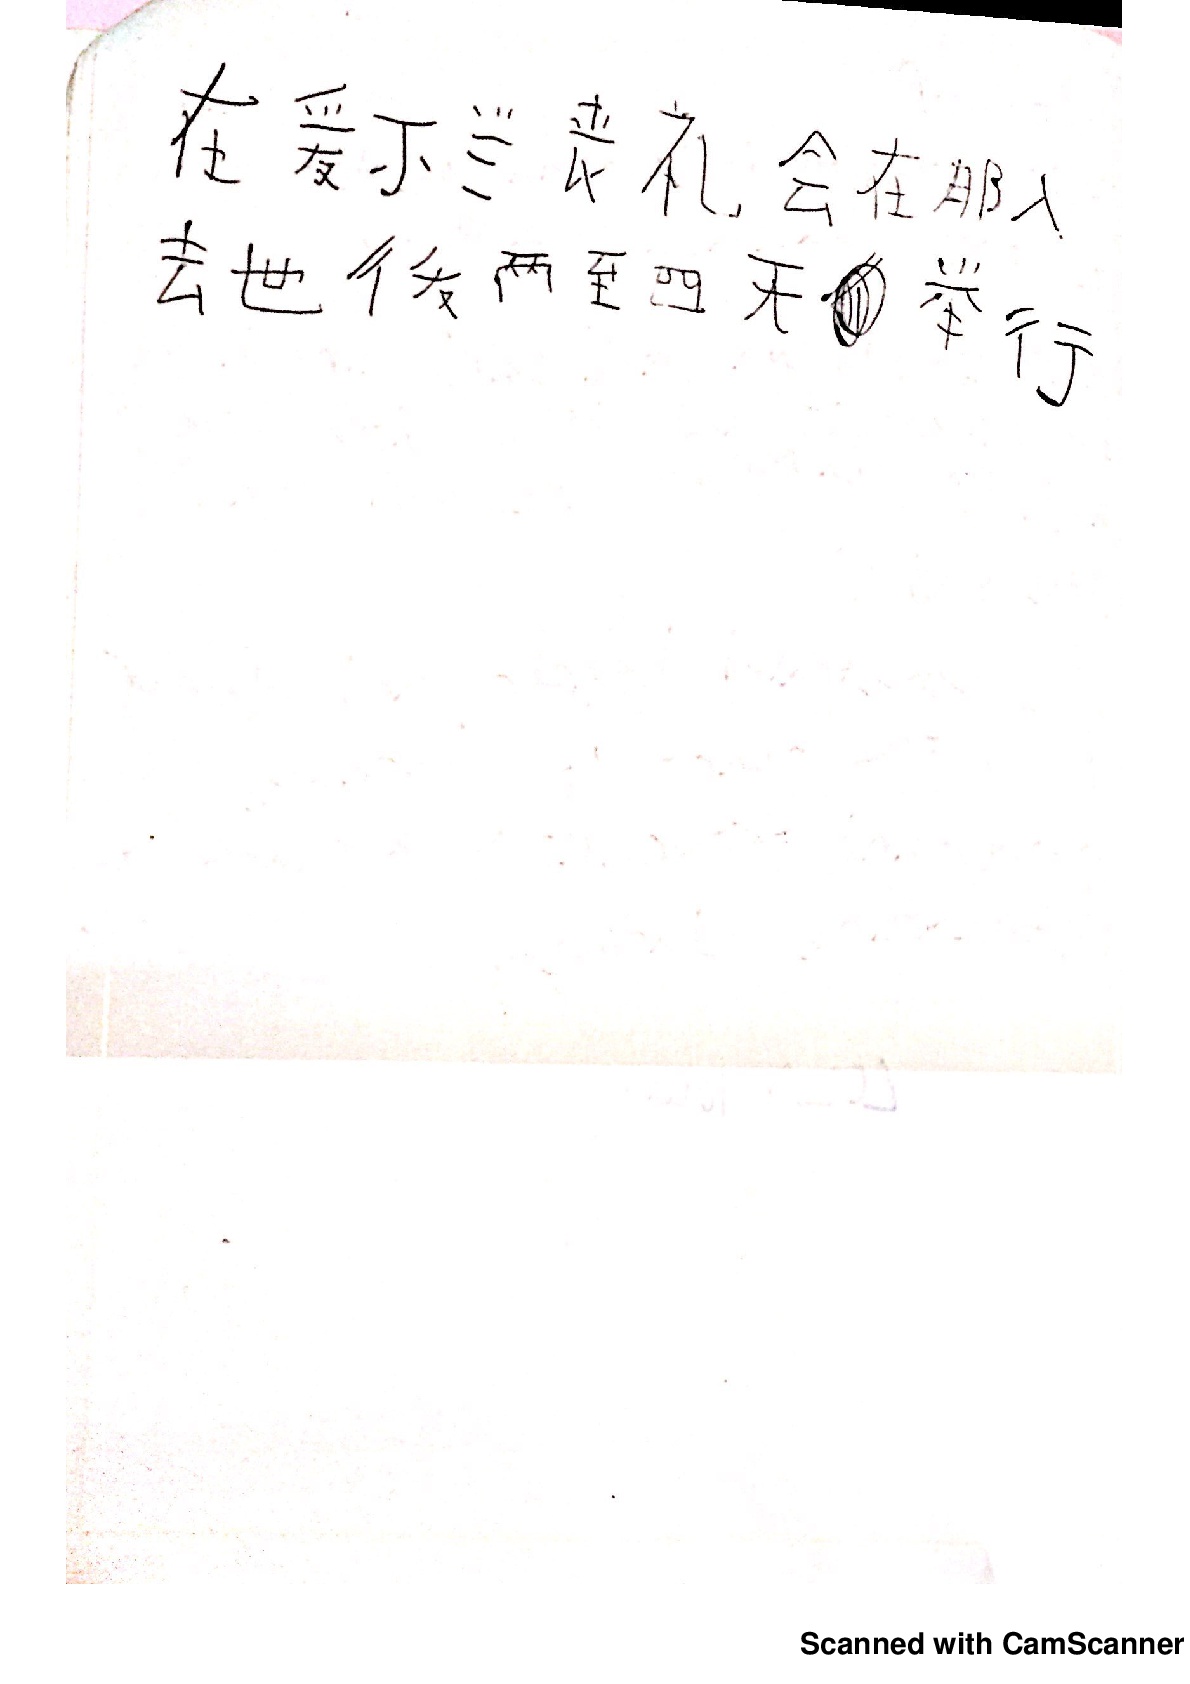 在爱尔兰丧礼,会在那人
去世後两至四天举行
Scanned with CamScanner